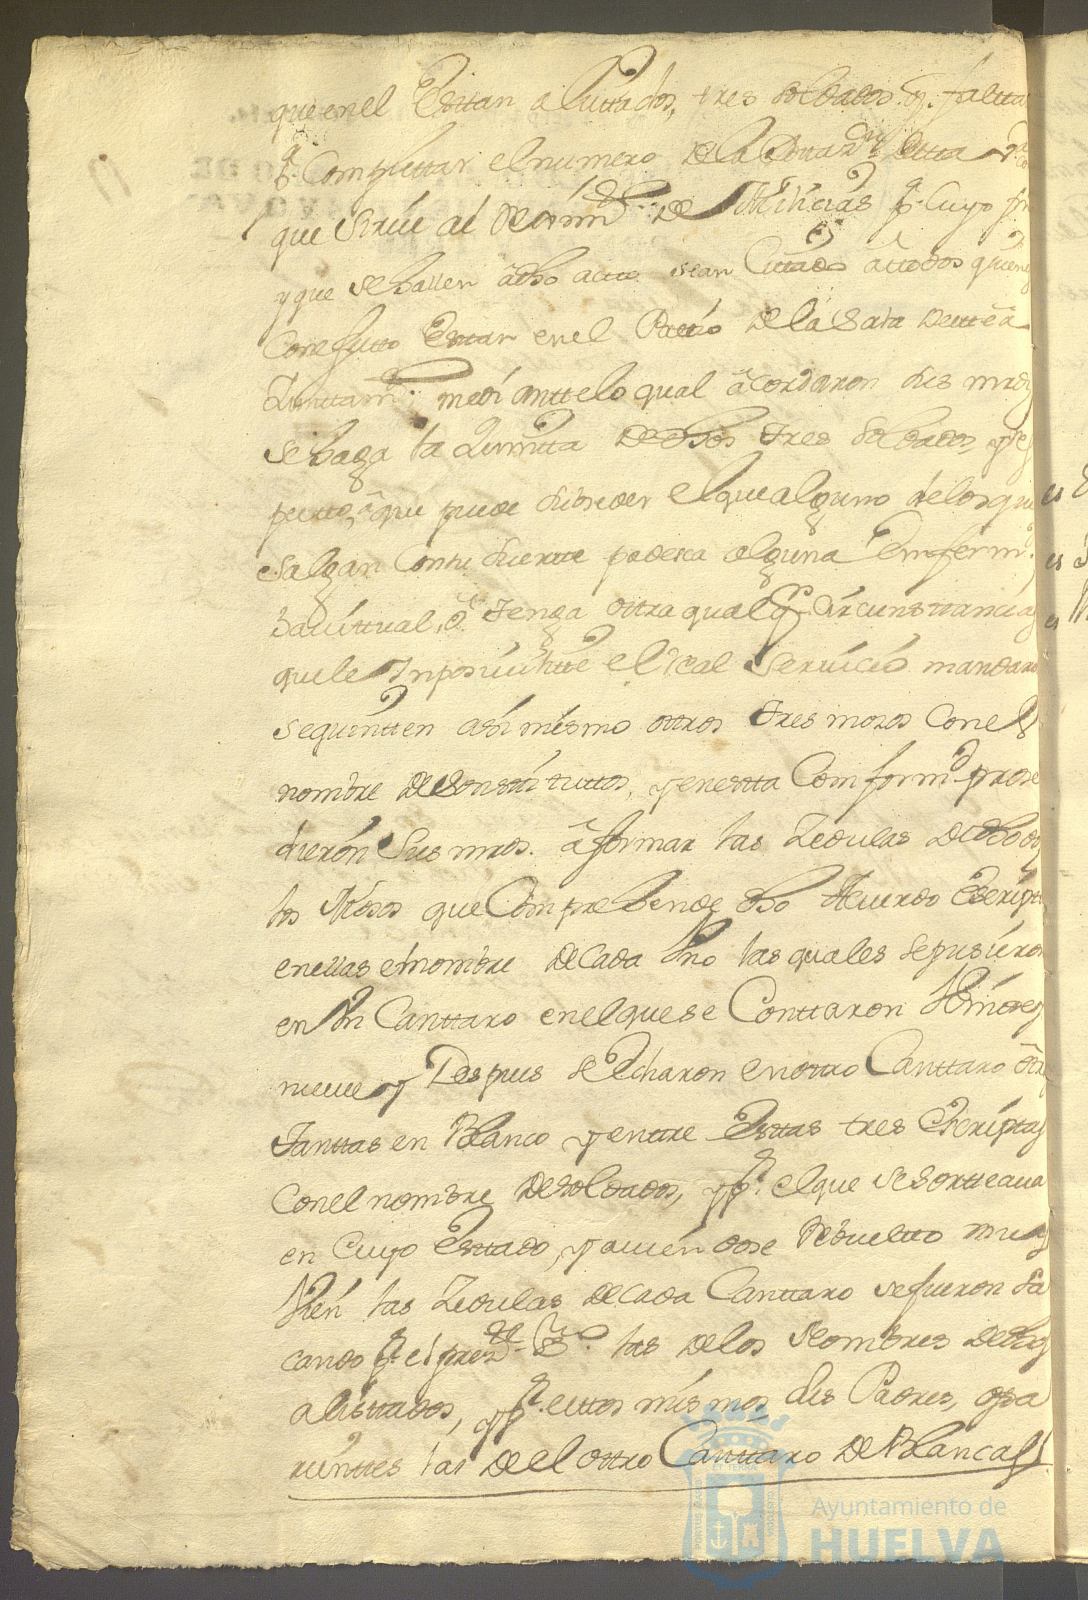 que en el Esttan alisttados, tres soldados q. faltta
pª. Complettar el numero de la Dotaz.on
que sirue al Regim.to de Milicias pª. Cuyo
y que se hallen â dho acto sean Cittados â ttodos quienes
Con efectto Esttan en el Pattio de la Sala de este â
Iunttam.to mediantte lo qual âcordaron sus mrds
se haga la Quintta de dhos tres soldados, y res
pectto, â que puede suseder el que alguno de los que
salgan Con tal suertte padesca alguna Emferm.d
havittual, ô tenga ottra qualq.ra Circunsttancia
que le Inposiuilitte el Real Seruicio mandaron
se quintten asi mismo ottros tres mosos Con el
nombre de Sonstituttos, y en estta Comform.d prose
dieron Sus mrds. â formar las Zedulas de ttodos
los Mosos que Comprehende dho Acuerdo Escriptto
en ellas el nombre de Cada Vno las quales se pusieron
en Vn Canttaro en el que se Conttaron
nueve y Despues se Echaron en ottro Canttaro ôttras
Tanttas en Blanco y enttre Esttas tres Escripttas
Con el nombre de Soldados, y pr. el que se sortteaua
en Cuyo Esttado, y auiendose Rebueltto mui
Vien las Zedulas de Cada Canttaro se fueron sa
cando pr. el prez.te Ess.no las de los Nombres de los
alisttados, y pr. esttos mismos sus Padres, o pa
rienttes las del ottro Canttaro de Blancas
Ayuntamiento de
HUELVA